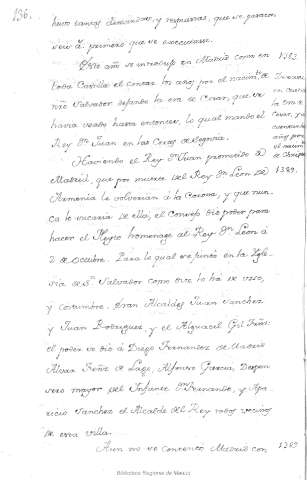 136.
huvo tantas demandas, y respuestas, que se pasaron
seis a. primero que se executase.
Este año se introdujo en Madrid como en
toda Castilla el contar los años por el nacim.to de
n.ro Salvador dejando la era de Cesar, que se
havia usado hasta entonces, lo qual mandó el
Rey D.n Juan en las Cortes de Segovia.
1383
la Era de
Cesar, y se
años por
el nacim.to
Haviendo el Rey D.n Juan prometido à
Madrid, que por muerte del Rey D.n Leon de
Armenia le volverian á la Corona, y que nun-
ca lo sacaria de ella, el consejo dió poder para
hacer el Pleyto homenage al Rey D.n Leon á
2 de octubre. Para lo qual se juntó en la Ygle-
sia de S.n Salvador como otras lo há de uso,
y costumbre. Eran Alcaldes Juan Sanchez
y Juan Rodriguez, y el Alguacil Gil Frñz.
el poder se dió à Diego Fernandez de Madrid
Alvar Frñz de Lago, Alfonso Garcia, Despen-
sero mayor del Infante D.n Fernando, y Apa-
ricio Sanchez el Alcalde del Rey todos vecinos
de esta villa.
1389.
Aun no se contentó Madrid con
1389
Biblioteca Regional de Madrid